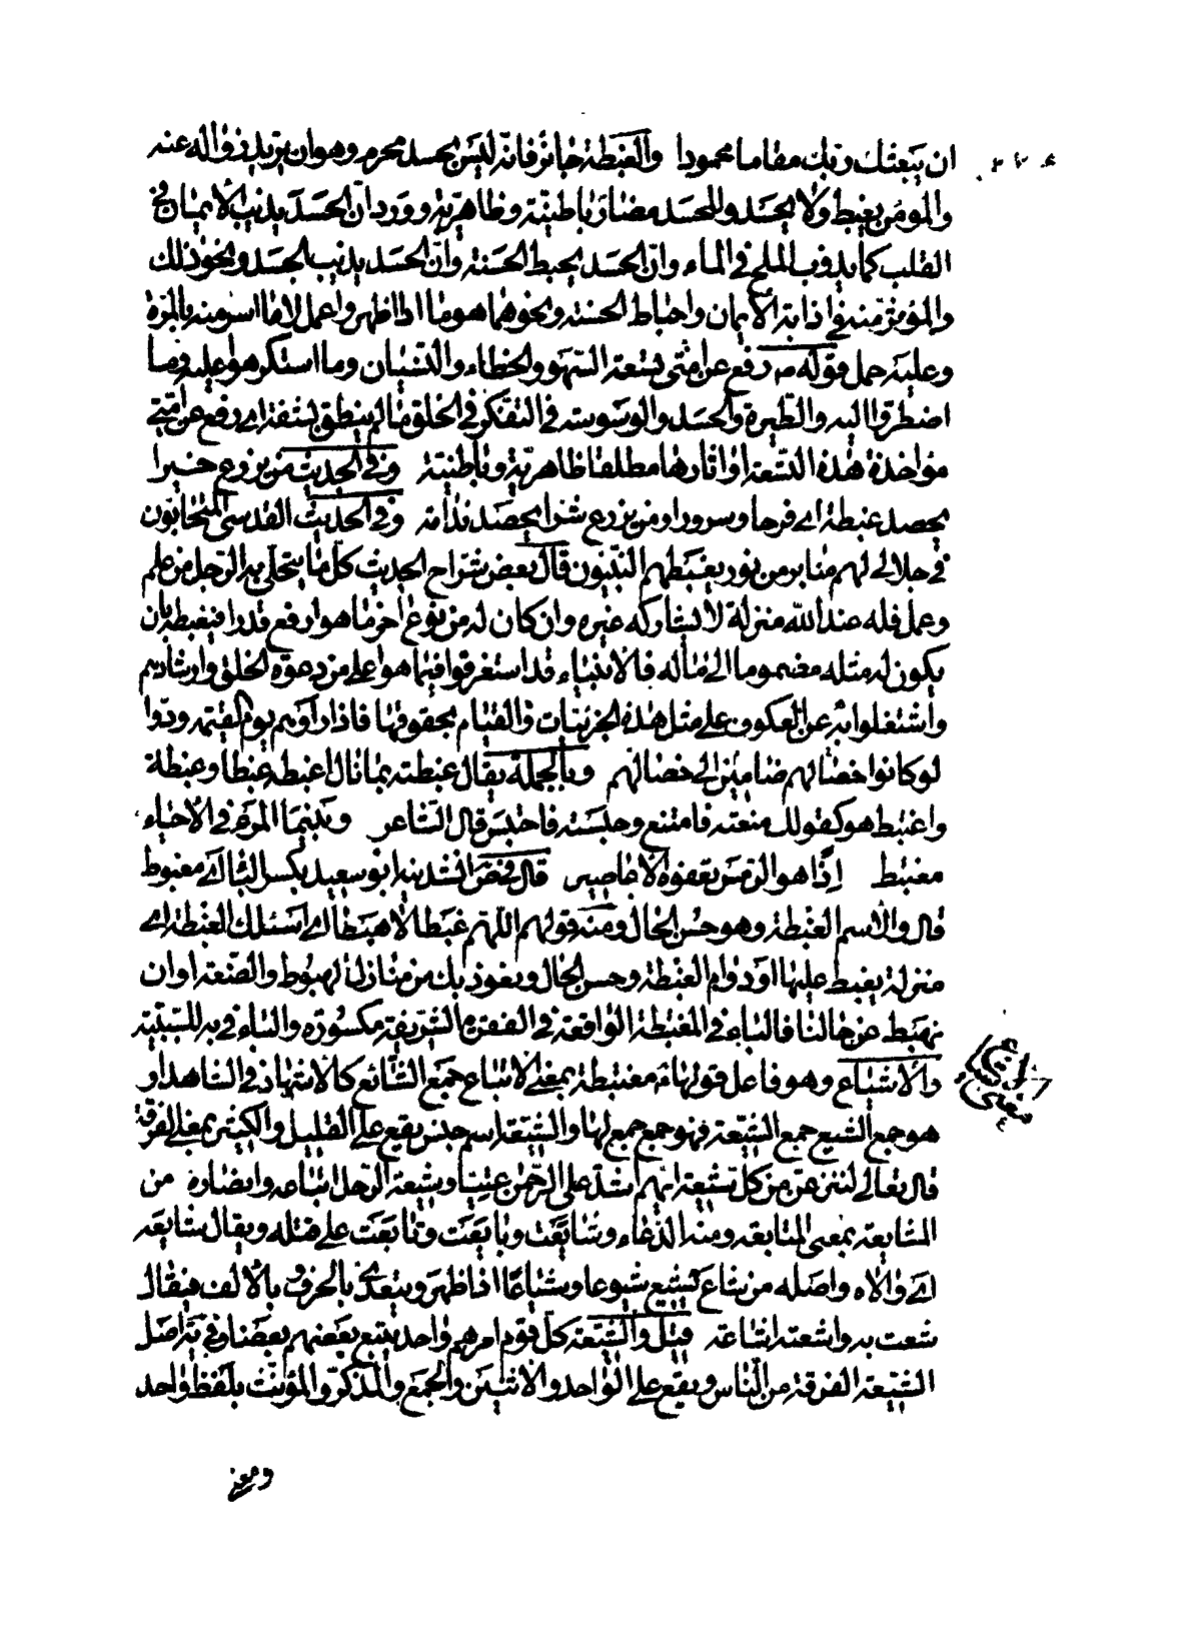 ان يبعثك ربك مقاما محمودا والغبطة جائز فانه ليس بحسد محرم وهو ان يريد زواله عنه
والمؤمن يغبط ولا يحسد وللحسد مضار باطنية وظاهرية وورد ان الحسد يذيب الايمان في
القلب كما يذوب الملح في الماء وان الحسد يحبط الحسنة وان الحسد يذيب الجسد ونحو ذلك
والمؤثر منه في اذابة الايمان واحباط الحسنة ونحوهما هو ما اذا اظهر واعمل لا ما اسر منه بالمرة
وعليه حمل قوله ص رفع عن امتي تسعة السهو والخطاء والنسيان وما استكرهوا عليه وما
اضطروا اليه والطيرة والحسد والوسوسة في التفكر في الخلق ما لم ينطق بشفة اي رفع عن امتي
مؤاخذة هذه التسعة او اثارها مطلقا ظاهرية وباطنية وفي الحديث من يزرع خيرا
يحصد غبطة اي فرحا وسرورا ومن يزرع شرا يحصد ندامة وفي الحديث القدسي المتحابون
في جلالي لهم منابر من نور يغبطهم النبيون قال بعض شراح الحديث كل ما يتحلى به الرجل من علم
وعمل فله عند الله منزلة لا يشاركه غيره وان كان له من نوع اخر ما هو ارفع قدرا فيغبطه بان
يكون له مثله مضموما الى ماله فالانبياء قد استغرقوا فيما هو اعلى من دعوة الخلق وارشادهم
واشتغلوا به عن العكوف على مثل هذه الجزئيات والقيام بحقوقها فاذا راوهم يوم القيمة ودوا
لو كانوا خصالهم ضامين الى خصالهم وبالجملة يقال غبطته بما نال اغبطه غبطا وغبطة
واغتبط هو كقولك منعته فامتنع وحبسته فاحتبس قال الشاعر وبينما المرء في الاحياء
مغتبط اذا هو الرمس يعفوه الاعاصير قال في ص انشدنيه ابو سعيد بكسر الباء اي مغبوط
قال والاسم الغبطة وهو حسن الحال ومنه قولهم اللهم غبطا لا هبطا اي اسئلك الغبطة اي
منزلة يغبط عليها او دوام الغبطة وحسن الحال ونعوذ بك من منازل الهبوط والضعة او ان
نهبط عن حالنا فالباء في المغتبطة الواقعة في الفقرة الشريفة مكسورة والباء في به للسببية
والاشياع وهو فاعل قولها مغتبطة بمعنى الاتباع جمع الشائع كالاشهاد في الشاهد او
هو جمع الشيع جمع الشيعة فهو جمع جمع لها والشيعة اسم جنس يقع على القليل والكثير بمعنى الفرقة
قال تعالى لننزعن من كل شيعة ايهم اشد على الرحمن عتيا وشيعة الرجل اتباعه وانصاره من
المشايعة بمعنى المتابعة ومنه الدعاء وشايعت وبايعت وتابعت على قتله ويقال شايعه
اي والاه واصله من شاع يشيع شيوعا وشياعا اذا ظهر ويتعدى بالحرف وبالالف فيقال
شعت به واشعته اشاعة قيل والشيعة كل قوم امرهم واحد يتبع بعضهم بعضا وفي ية اصل
الشيعة الفرقة من الناس ويقع على الواحد والاثنين والجمع والمذكر والمؤنث بلفظ واحد